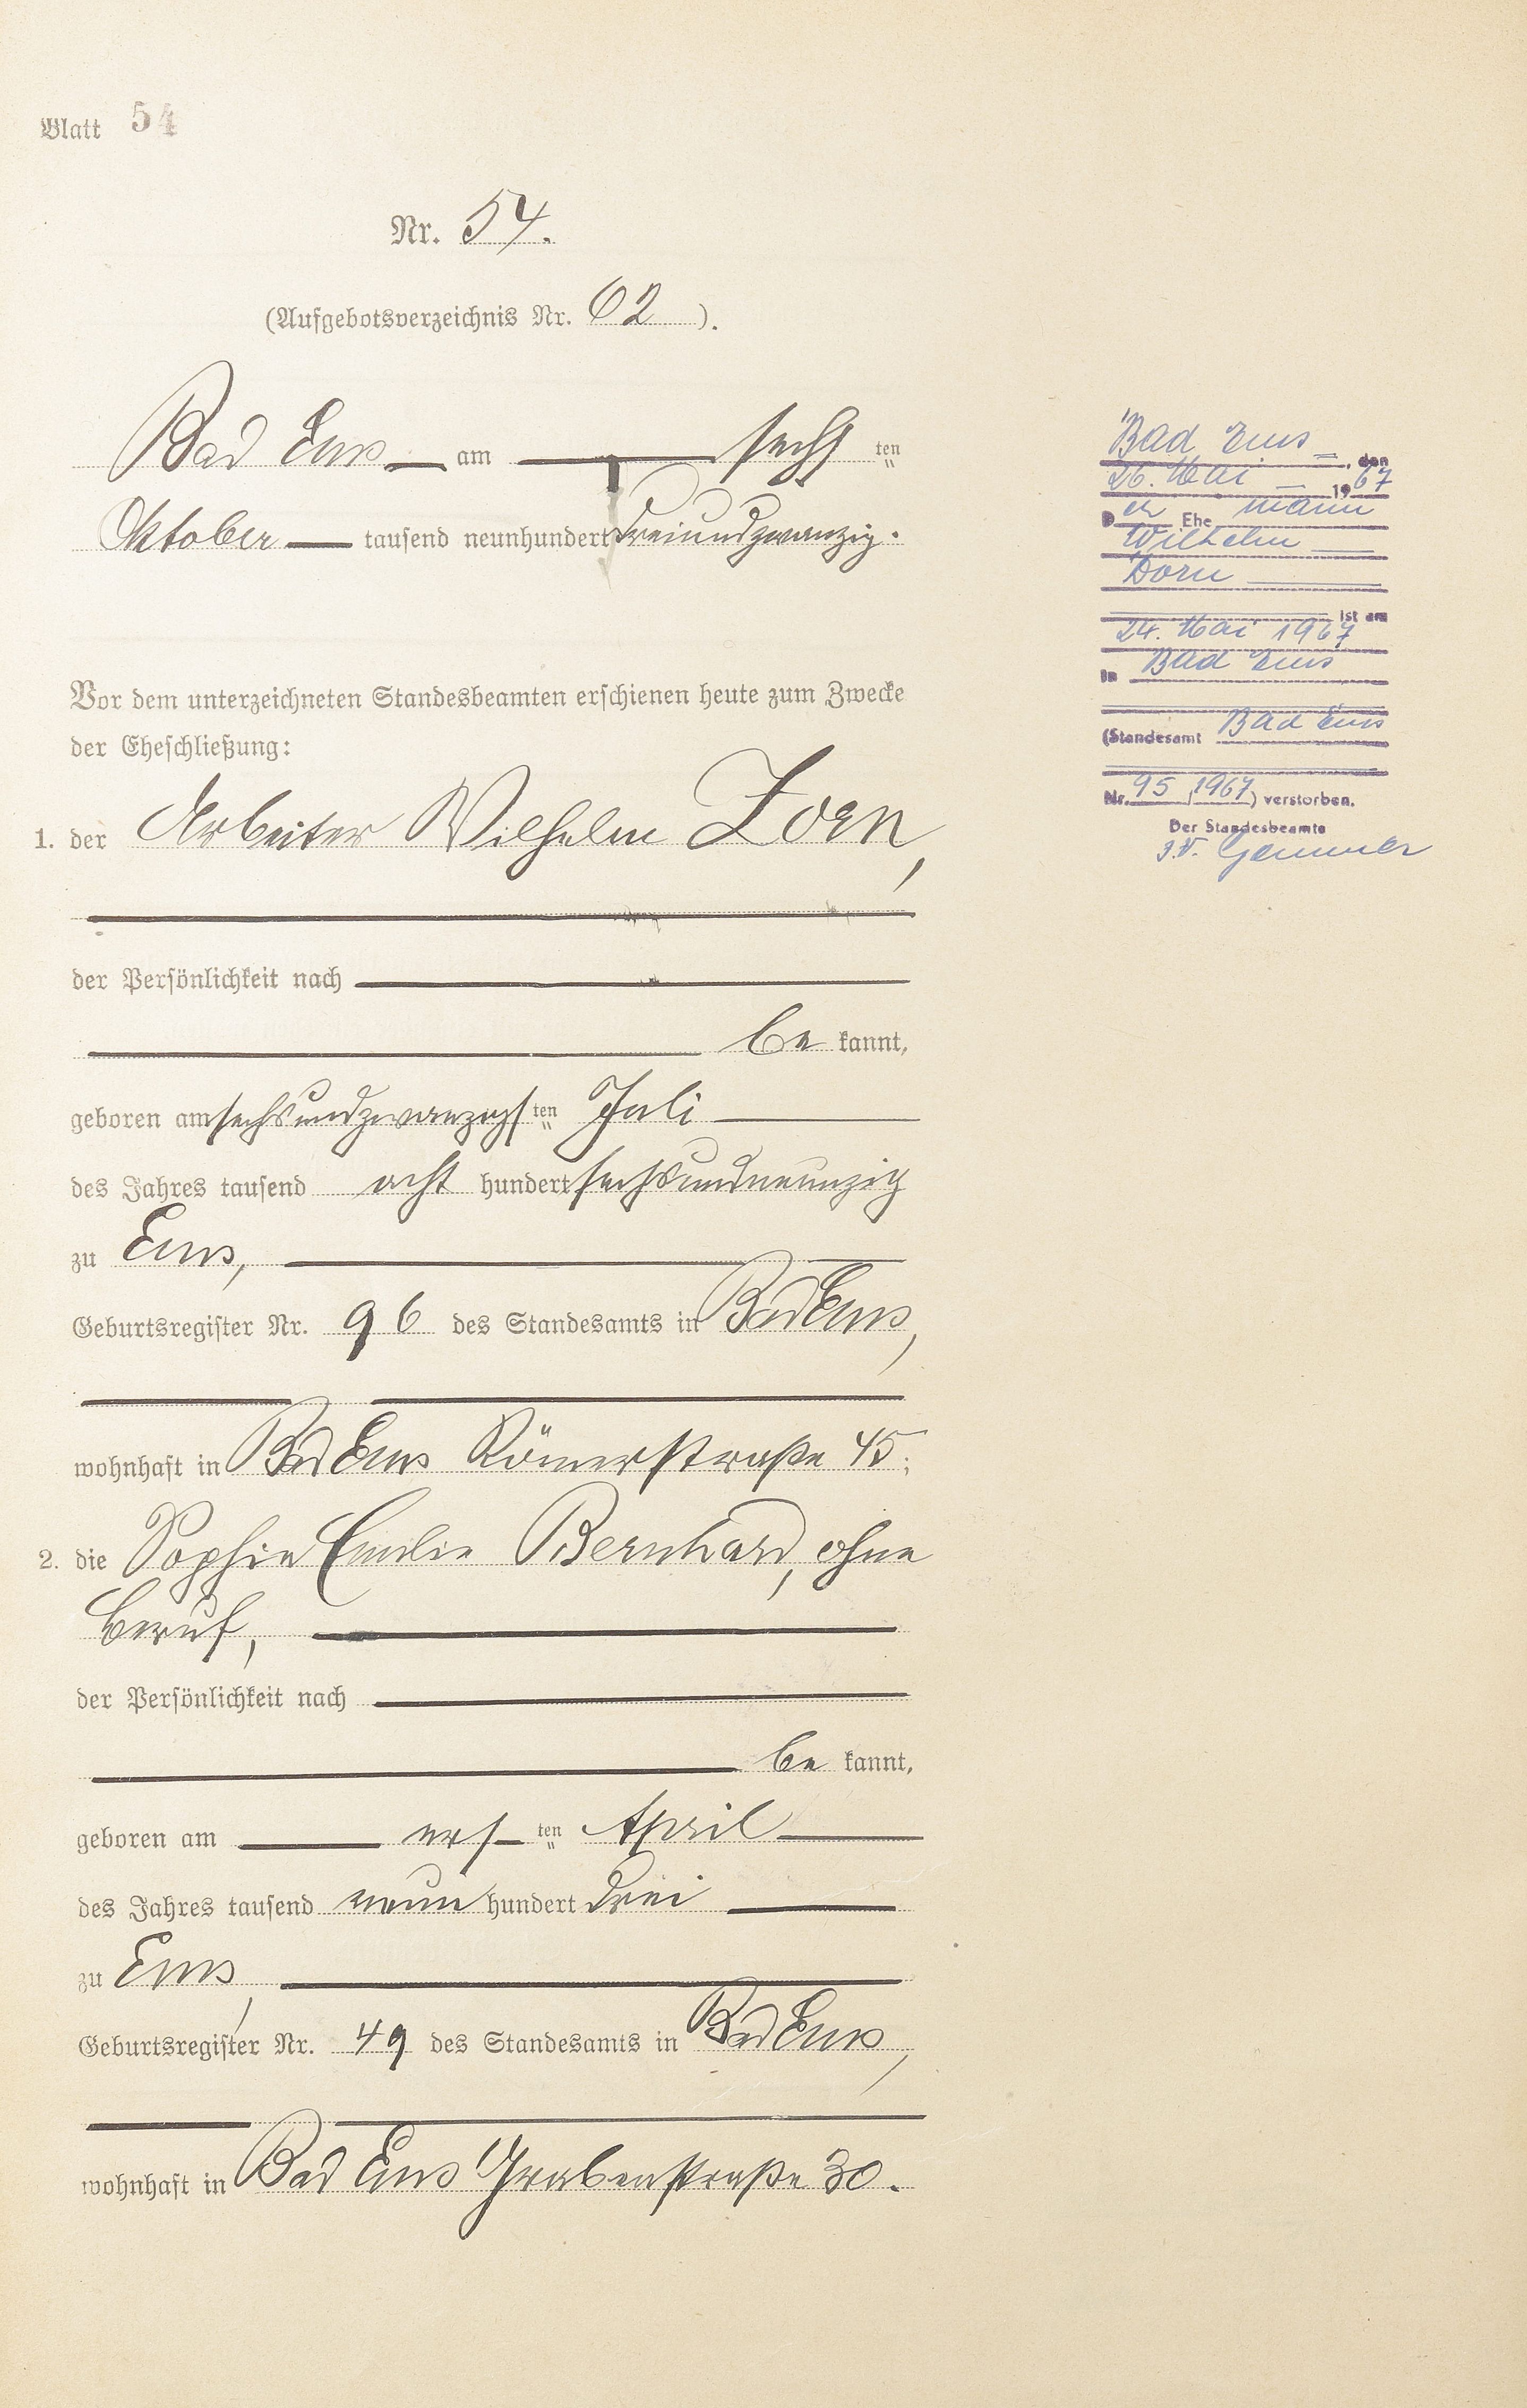 Blatt 54
Nr. 54.
(Aufgebotsverzeichnis Nr. 62 ).
Bad Ems am sechsten
Oktober tausend neunhundert dreiundzwanzig.
Vor dem unterzeichneten Standesbeamten erschienen heute zum Zwecke
der Eheschließung:
1. der Arbeiter Wilhelm Dorn,
der Persönlichkeit nach
be kannt,
geboren am sechsundzwanzigsten Juli
des Jahres tausend acht hundert sechsundneunzig
zu Ems,
Geburtsregister Nr. 96 des Standesamts in Bad Ems,
wohnhaft in Bad Ems Römerstraße 45;
2. die Sophie Emilie Bernhard, ohne
Beruf,
der Persönlichkeit nach
be kannt,
geboren am ersten April
des Jahres tausend neun hundert drei
zu Ems,
Geburtsregister Nr. 49 des Standesamts in Bad Ems,
wohnhaft in Bad Ems Grabenstraße 30.
Bad Ems, den
26. Mai 1967
Der Ehemann
Wilhelm
Dorn
ist am
24. Mai 1967
in Bad Ems
(Standesamt Bad Ems
Nr. 95/1967) verstorben.
Der Standesbeamte
I.V. Gemmer